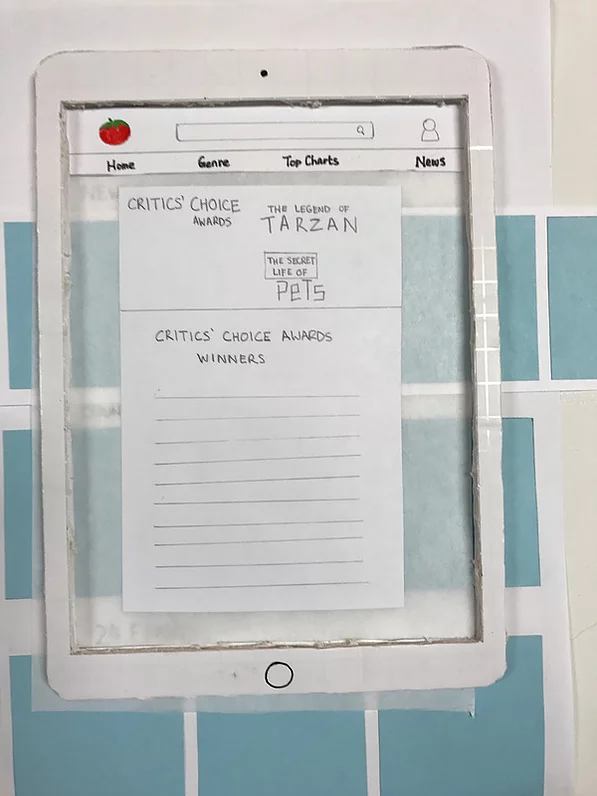 Home Genre Top Charts News
CRITICS' CHOICE
AWARDS
THE LEGEND OF
TARZAN
THE SECRET
LIFE OF
PETS
CRITICS' CHOICE AWARDS
WINNERS